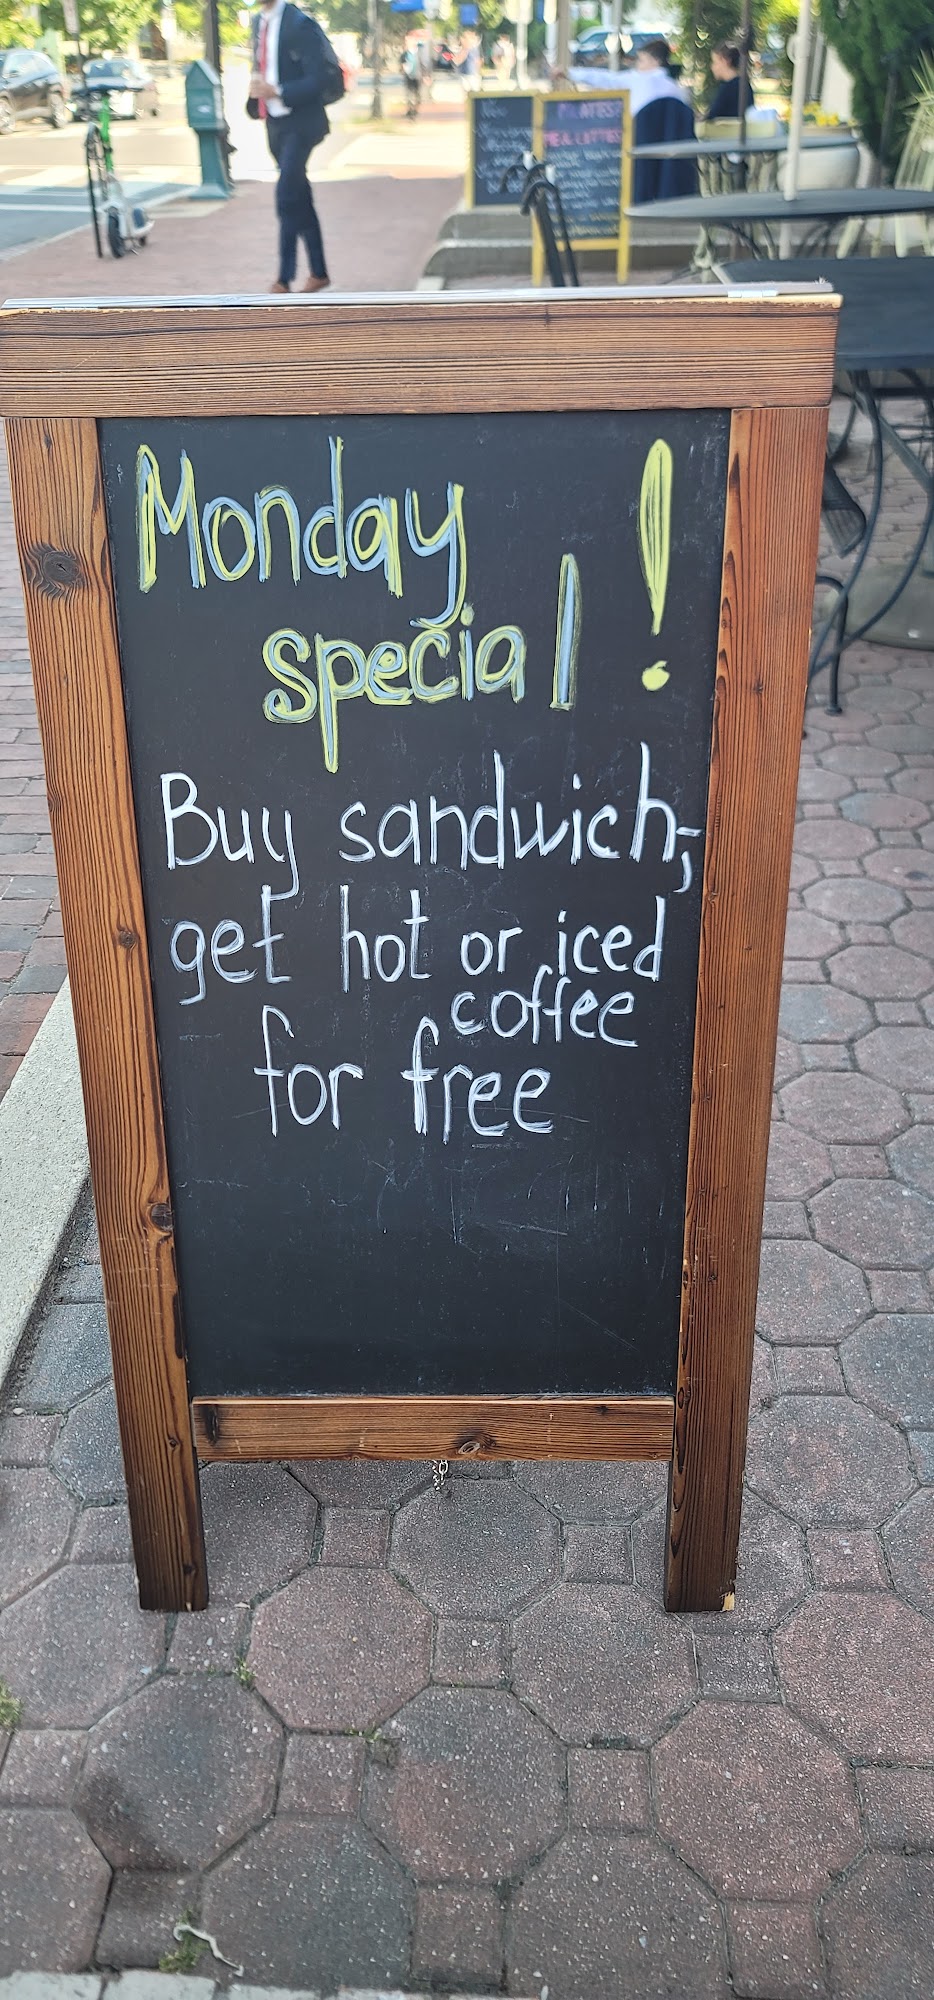 Monday
special!
Buy sandwich,
get hot or iced
coffee
for free